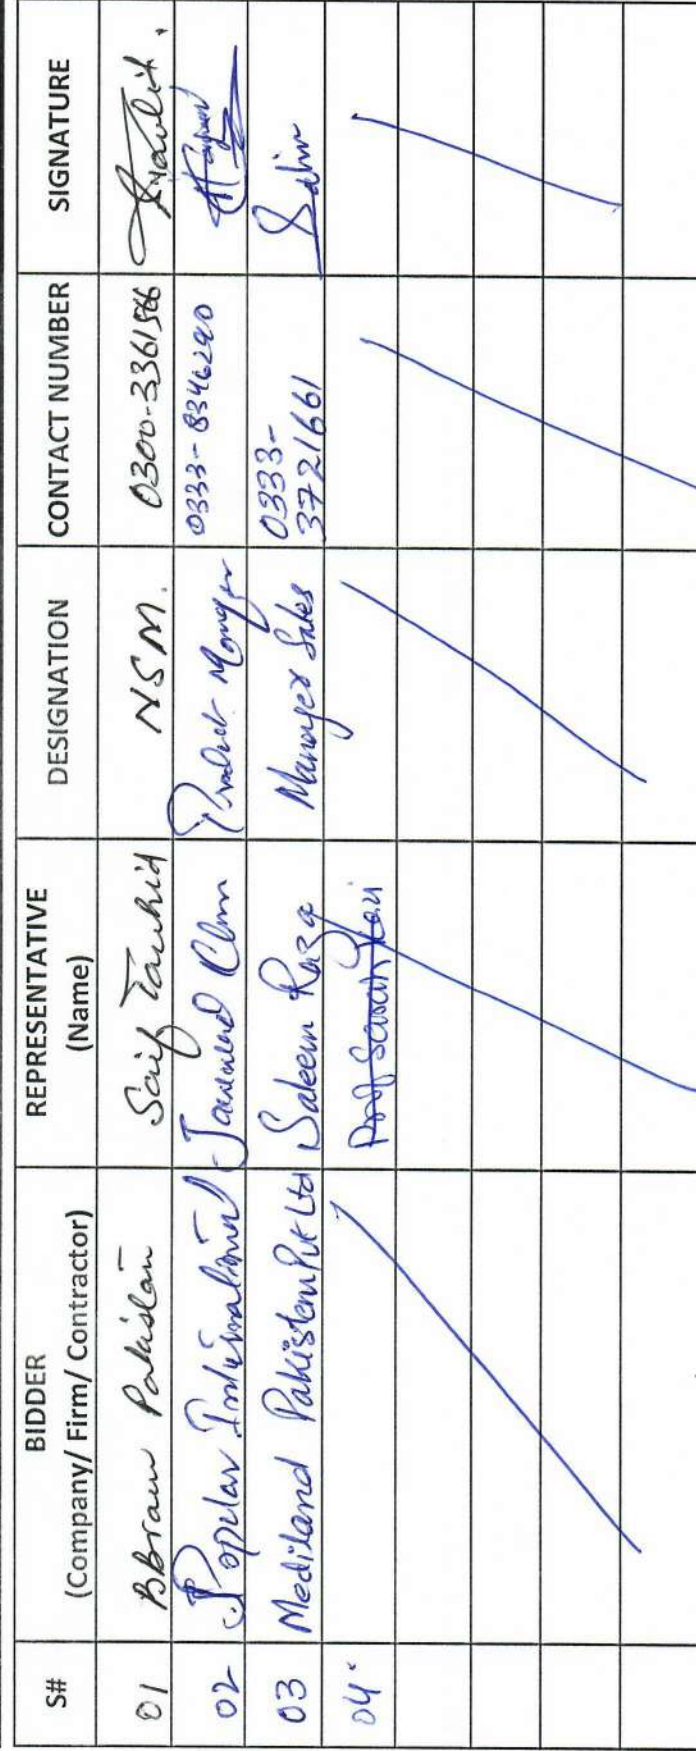 S#
BIDDER
(Company/ Firm/ Contractor)
REPRESENTATIVE
(Name)
DESIGNATION
CONTACT NUMBER
SIGNATURE
01 BBraun Pakistan Saif Tauhid NSM. 0300-3361566
02 Popular International Jawwad Product Manager 0333-8346290
03 Mediland Pakistan Pvt Ltd Saleem Raza Manager Sales 0333-
3721661
04.